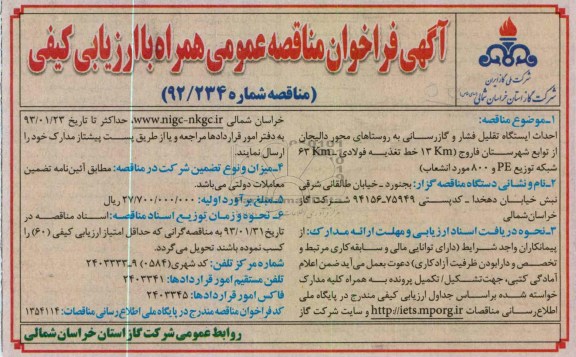 آگهی فراخوان مناقصه عمومی همراه با ارزیابی کیفی
(مناقصه شماره ۹۲/۲۳۴)
شرکت ملی گاز ایران
شرکت گاز استان خراسان شمالی
۱ـ موضوع مناقصه:
احداث ایستگاه تقلیل فشار و گازرسانی به روستاهای محور دالیجان
از توابع شهرستان فاروج (۱۳ Km خط تغذیه فولادی ـ ۶۳ Km
شبکه توزیع PE و ۸۰۰ مورد انشعاب)
۲ـ نام و نشانی دستگاه مناقصه گزار: بجنورد ـ خیابان طالقانی شرقی
نبش خیابان دهخدا ـ کدپستی ۷۵۹۴۹ـ۹۴۱۵۶ شرکت گاز
خراسان شمالی
۳ـ نحوه دریافت اسناد ارزیابی و مهلت ارائه مدارک: از
پیمانکاران واجد شرایط (دارای توانایی مالی و سابقه کاری مرتبط و
تخصص و دارا بودن ظرفیت آزاد کاری) دعوت بعمل می‌آید ضمن اعلام
آمادگی کتبی، جهت تشکیل / تکمیل پرونده به همراه کلیه مدارک
خواسته شده براساس جداول ارزیابی کیفی مندرج در پایگاه ملی
اطلاع رسانی مناقصات http://iets.mporg.ir و سایت شرکت گاز
خراسان شمالی www.nigc-nkgc.ir، حداکثر تا تاریخ ۹۳/۰۱/۲۳
به دفتر امور قراردادها مراجعه و یا از طریق پست پیشتاز مدارک خود را
ارسال نمایند.
۴ـ میزان و نوع تضمین شرکت در مناقصه: مطابق آئین‌نامه تضمین
معاملات دولتی می‌باشد.
۵ـ مبلغ برآورد اولیه: ۲۷/۷۰۰/۰۰۰/۰۰۰ ریال
۶ـ نحوه و زمان توزیع اسناد مناقصه: اسناد مناقصه در
تاریخ ۹۳/۰۱/۳۱ به مناقصه گرانی که حداقل امتیاز ارزیابی کیفی (۶۰) را
کسب نموده باشند تحویل می‌گردد.
شماره مرکز تلفن: کد شهری (۰۵۸۴) ۹ـ۲۴۰۳۳۳۳
تلفن مستقیم امور قراردادها: ۲۴۰۳۳۴۱
فاکس امور قراردادها: ۲۴۰۳۳۴۵
کد فراخوان مناقصه مندرج در پایگاه ملی اطلاع رسانی مناقصات: ۱۳۵۴۱۱۴
روابط عمومی شرکت گاز استان خراسان شمالی